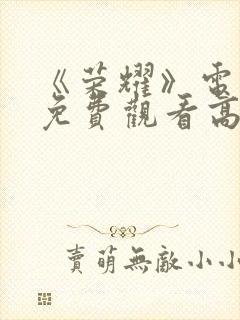 《荣耀》電
免費觀看高
賣萌無敵小小